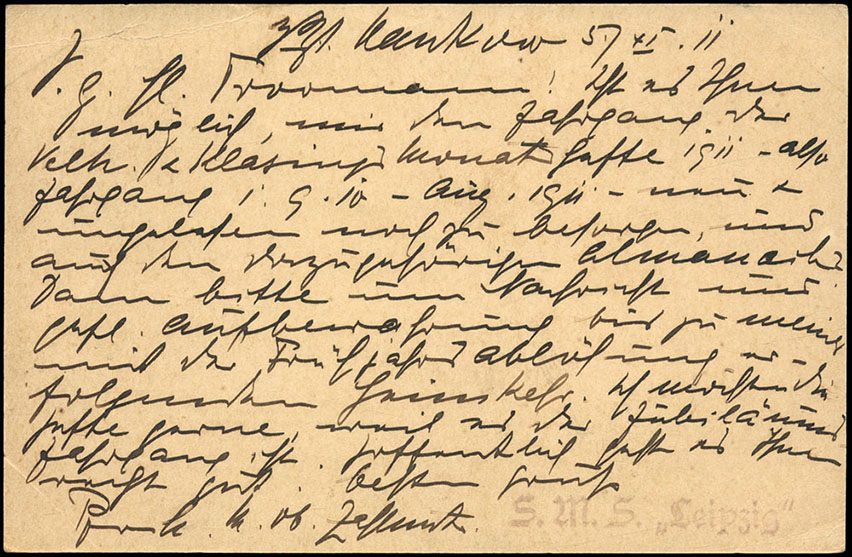 zzt. Hankow 5/XI.11
S. g. H. Troomann! Ist es Ihnen
möglich, mir den Jahrgang der
Velh. & Klasings Monatshefte 1911 - also
Jahrgang 1.9.10 - Aug. 1911 - neu &
ungelesen noch zu besorgen, und
auch den dazugehörigen Almanach.
Dann bitte um Nachricht und
gefl. Aufbewahrung bis zu meiner
mit der Frühjahrsablösung er-
folgenden Heimkehr. Ich möchte die
Hefte gerne, weil es der Jubiläums
Jahrgang ist. Hoffentlich geht es Ihnen
recht gut. Besten Gruß
S.M.S. „Leipzig"